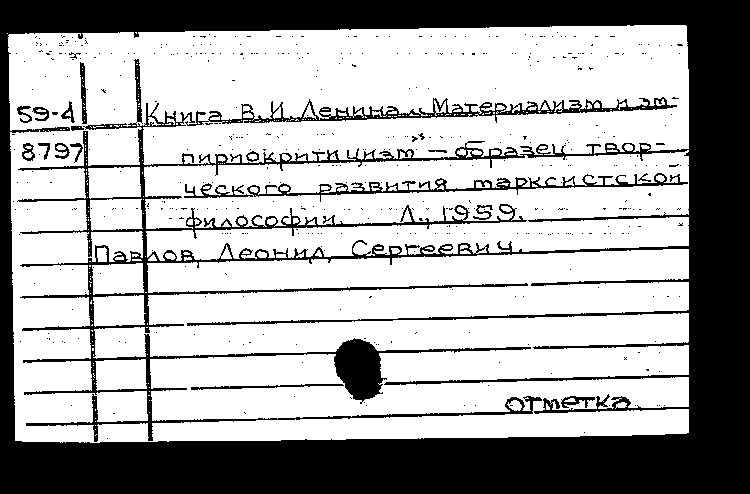 59-4 Книга В.И. Ленина „Материализм и эм-
8797 пириокритицизм" — образец твор-
ческого развития марксистской
философии. Л., 1959.
Павлов, Леонид Сергеевич.
отметка